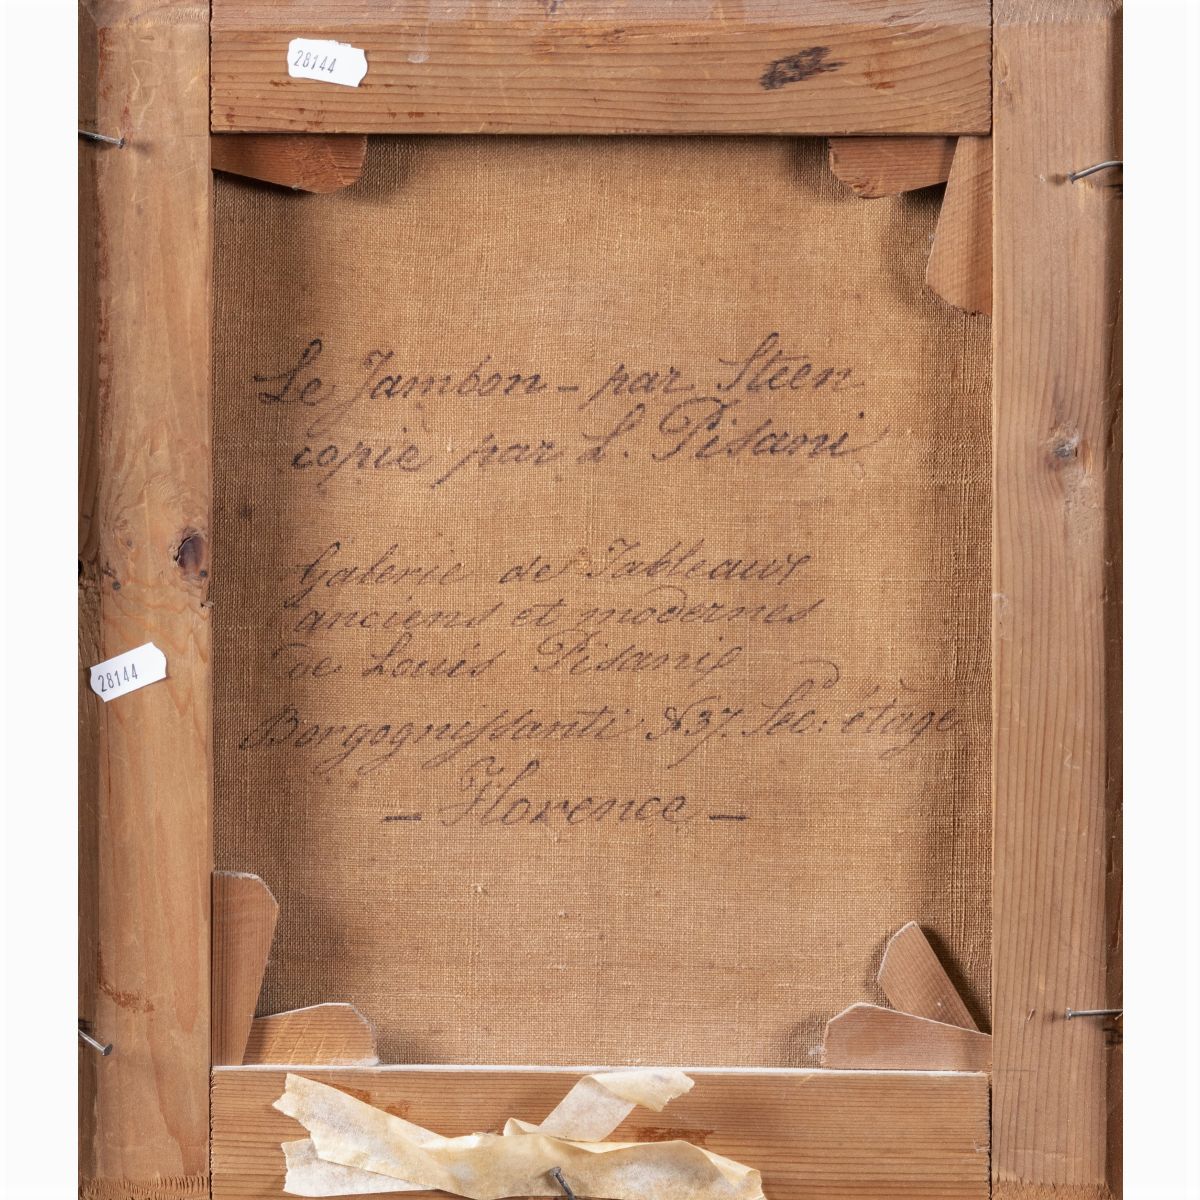 28144
Le Jambon - par Steen
copie par L. Pisani
Galerie de Tableaux
anciens et modernes
de Louis Pisani
28144
Borgognissanti No 37. Sec: étage
- Florence -